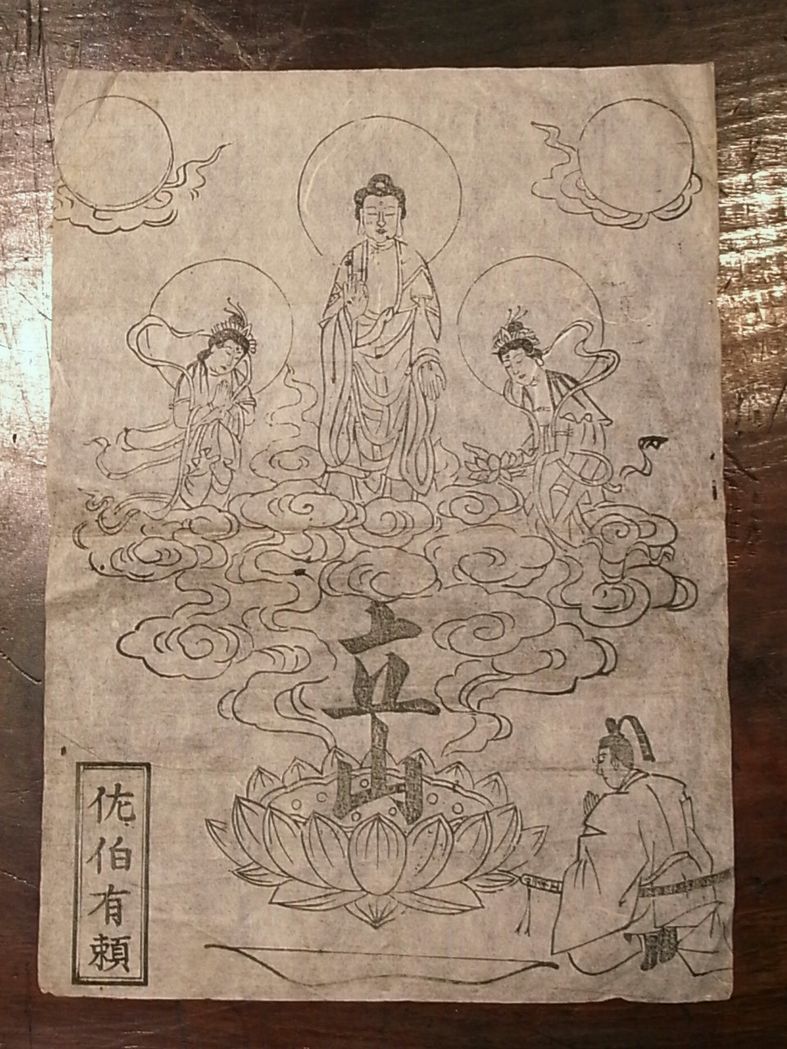 立山
佐伯有頼